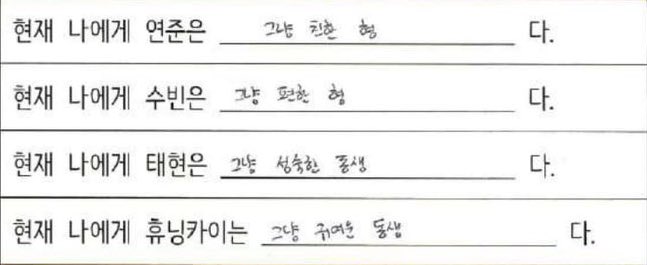 현재 나에게 연준은 그냥 친한 형 다.
현재 나에게 수빈은 그냥 편한 형 다.
현재 나에게 태현은 그냥 성숙한 동생 다.
현재 나에게 휴닝카이는 그냥 귀여운 동생 다.